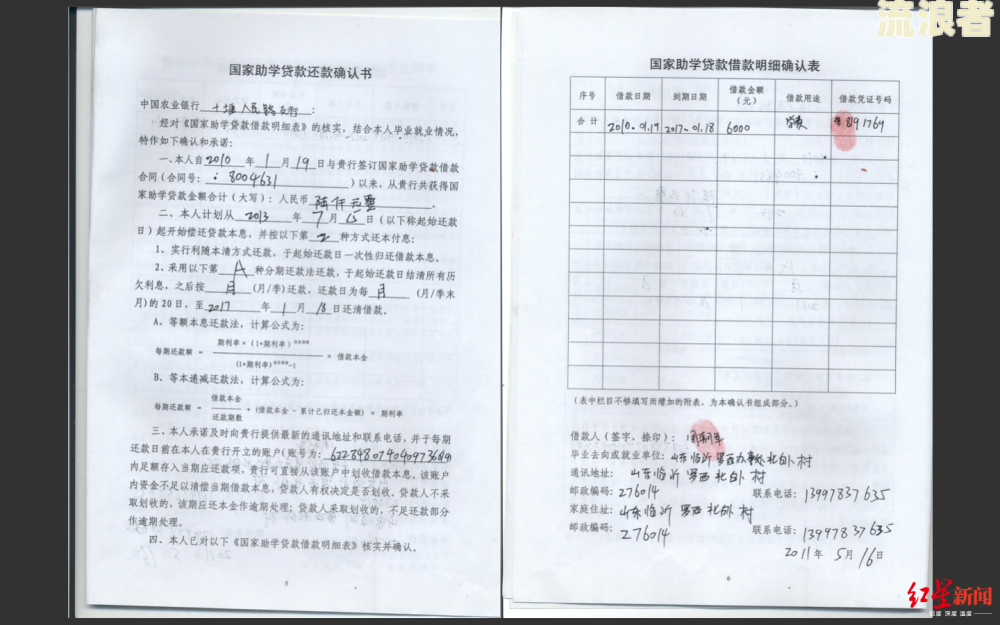 流浪者
国家助学贷款还款确认书
中国农业银行 十堰人民路支行 :
经对《国家助学贷款借款明细表》的核实,结合本人毕业就业情况,
特作如下确认和承诺:
一、本人自 2010 年 1 月 19 日与贵行签订国家助学贷款借款
合同(合同号: 8004631 )以来,从贵行共获得国
家助学贷款金额合计(大写):人民币 陆仟元整 。
二、本人计划从 2013 年 7 月 15 日(以下称起始还款
日)起开始偿还贷款本息,并按以下第 2 种方式还本付息:
1、实行利随本清方式还款,于起始还款日一次性归还借款本息。
2、采用以下第 A 种分期还款法还款,于起始还款日结清所有历
欠利息,之后按 月 (月/季)还款,还款日为每 月 (月/季末
月)的 20 日,至 2017 年 1 月 18 日还清借款。
A、等额本息还款法,计算公式为:
每期还款额 = 期利率×(1+期利率)**** / (1+期利率)****-1 × 借款本金
B、等本递减还款法,计算公式为:
每期还款额 = 借款本金 / 还款期数 + (借款本金 - 累计已归还本金额)× 期利率
三、本人承诺及时向贵行提供最新的通讯地址和联系电话,并于每期
还款日前在本人在贵行开立的账户(账号为:
内足额存入当期应还款项,贵行可直接从该账户中划收借款本息。该账户
内资金不足以清偿当期借款本息,贷款人有权决定是否划收。贷款人不采
取划收的,该期应还本金作逾期处理;贷款人采取划收的,不足还款部分
作逾期处理。
四、本人已对以下《国家助学贷款借款明细表》核实并确认。
5
国家助学贷款借款明细确认表
序号 借款日期 到期日期 借款金额(元) 借款用途 借款凭证号码
合计 2010.01.19 2017.01.18 6000 学费 891764
(表中栏目不够填写而增加的附表,为本确认书组成部分。)
借款人(签字、捺印):
毕业去向或就业单位: 山东临沂罗西办事处北卧村
通讯地址: 山东临沂罗西北卧村
邮政编码: 276014 联系电话: 13997837635
家庭住址: 山东临沂罗西北卧村
邮政编码: 276014 联系电话: 13997837635
2011 年 5 月 16 日
6
红星新闻
深度 温度